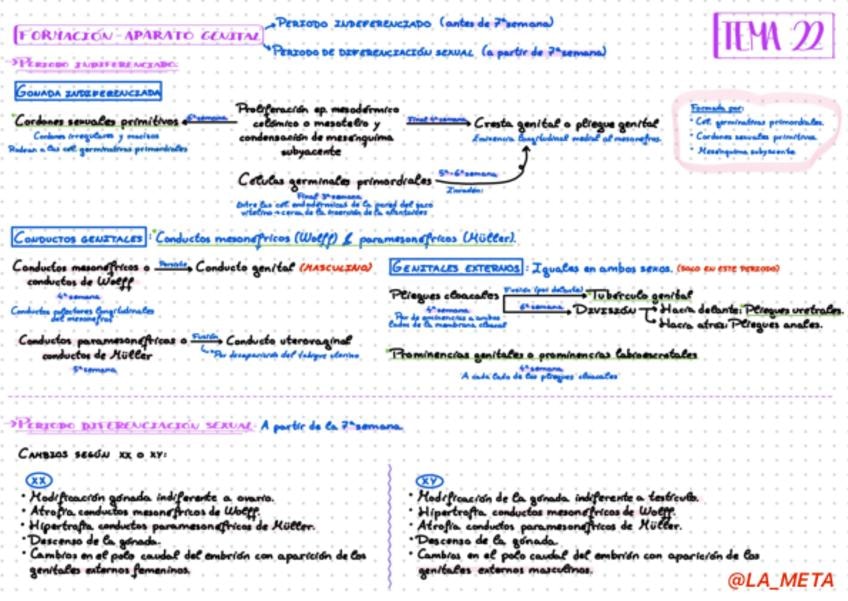 FORMACIÓN-APARATO GENITAL
PERIODO INDEFERENCIADO (antes de 7ª semana)
PERIODO DE DIFERENCIACIÓN SEXUAL (a partir de 7ª semana)
TEMA 22
PERIODO INDIFERENCIADO.
GONADA INDIFERENCIADA
Cordones sexuales primitivos
6ª semana
Cordones irregulares y macizos
Rodean a las cél. germinativas primordiales
Proliferación ep. mesodérmico
celómico o mesotelio y
condensación de mesénquima
subyacente
Final 4ª semana
Cresta genital o pliegue genital
Eminencia longitudinal medial al mesonefros.
Formada por:
· Cél. germinativas primordiales.
· Cordones sexuales primitivos.
· Mesénquima subyacente
Células germinales primordiales
Final 3ª semana
Entre las cél. endodérmicas de la pared del saco
vitelino cerca de la inserción de la alantoides
5ª-6ª semana
Invaden:
CONDUCTOS GENITALES: Conductos mesonéfricos (Wolff) & paramesonéfricos (Müller).
Conductos mesonéfricos o
conductos de Wolff
4ª semana
Conductos colectores longitudinales
del mesonefros
Persiste
Conducto genital (MASCULINO)
Conductos paramesonéfricos o
conductos de Müller
5ª semana
Fusión
Conducto uterovaginal
*Por desaparición del tabique uterino
GENITALES EXTERNOS: Iguales en ambos sexos. (SOLO EN ESTE PERIODO)
Pliegues cloacales
4ª semana
Par de eminencias a ambos
lados de la membrana cloacal
Fusión (por delante)
Tubérculo genital
6ª semana
DIVISIÓN
Hacia delante: Pliegues uretrales.
Hacia atrás: Pliegues anales.
Prominencias genitales o prominencias labioescrotales
4ª semana
A cada lado de los pliegues cloacales
PERIODO DIFERENCIACIÓN SEXUAL. A partir de la 7ª semana.
CAMBIOS SEGÚN XX O XY:
XX
· Modificación gónada indiferente a ovario.
· Atrofia conductos mesonéfricos de Wolff.
· Hipertrofia conductos paramesonéfricos de Müller.
· Descenso de la gónada.
· Cambios en el polo caudal del embrión con aparición de los
genitales externos femeninos.
XY
· Modificación de la gónada indiferente a testículo.
· Hipertrofia conductos mesonéfricos de Wolff.
· Atrofia conductos paramesonéfricos de Müller.
· Descenso de la gónada.
· Cambios en el polo caudal del embrión con aparición de los
genitales externos masculinos.
@LA_META